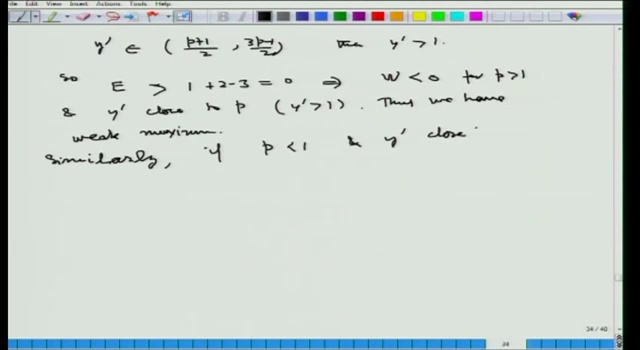 File Edit View Insert Actions Tools Help
y' ∈ ( p+1/2 , 3p-1/2 ) then y' > 1.
So E > 1 + 2 - 3 = 0 ⇒ W < 0 for p > 1
& y' close to p ( y' > 1 ). Thus we have
weak maximum.
Similarly, if p < 1 & y' close
34 / 40
34